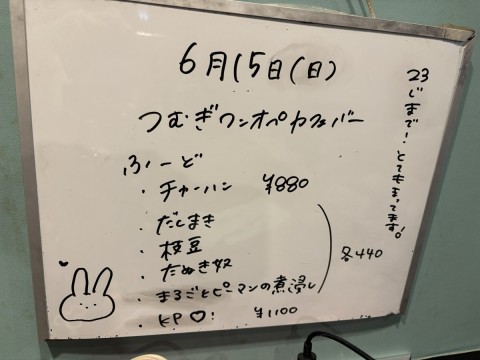 6月15日(日)
つむぎワンオペカフェバー
ふーど
・チャーハン ¥880
・だしまき
・枝豆
・たぬき奴
・まるごとピーマンの煮浸し
各440
・KP♡! ¥1100
23じまで!とてもまってます!